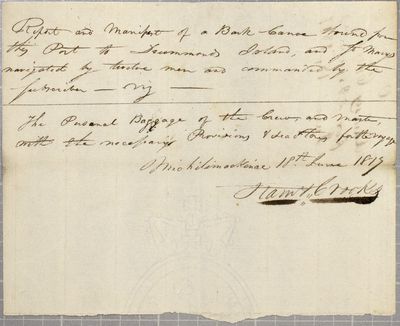 Report and Manifest of a Bark Canoe bound from
this Port to Drummonds Island, and St Marys
navigated by twelve men and commanded by the
subscriber — Viz —
The Personal Baggage of the Crew, and master,
with the necessary Provisions & for the voyage
Michilimackinac 18th June 1817
Ram. Crooks